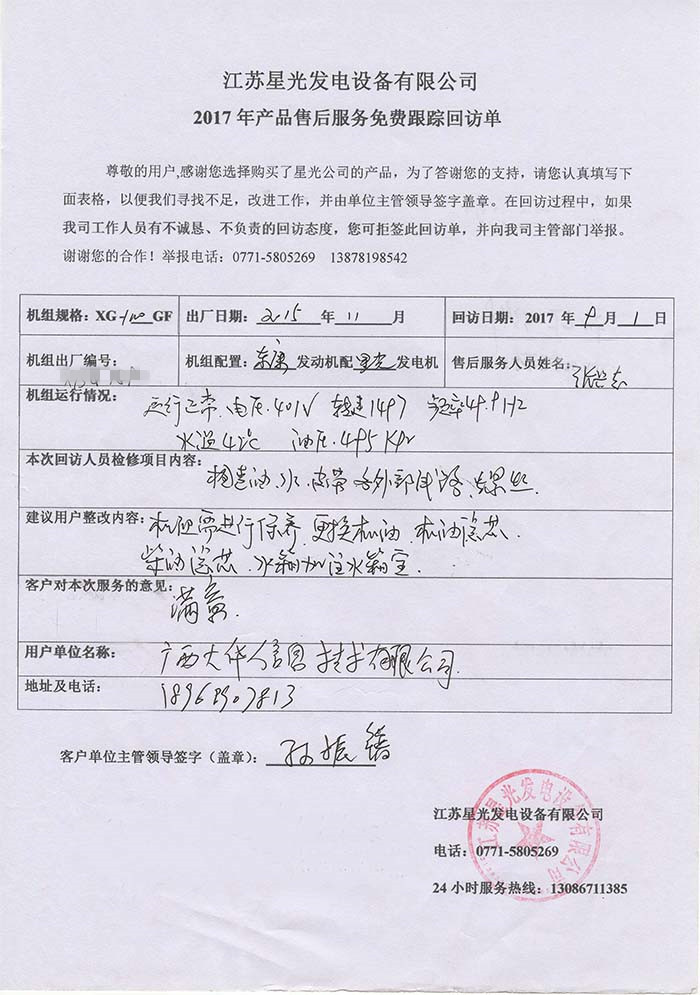 江苏星光发电设备有限公司
2017 年产品售后服务免费跟踪回访单
尊敬的用户,感谢您选择购买了星光公司的产品，为了答谢您的支持，请您认真填写下
面表格，以便我们寻找不足，改进工作，并由单位主管领导签字盖章。在回访过程中，如果
我司工作人员有不诚恳、不负责的回访态度，您可拒签此回访单，并向我司主管部门举报。
谢谢您的合作！举报电话：0771-5805269 13878198542
机组规格：XG-100 GF 出厂日期：2015 年 11 月 回访日期：2017 年 9 月 1 日
机组出厂编号： 机组配置：东康 发动机配 星光 发电机 售后服务人员姓名：
机组运行情况：
运行正常、电压401V 转速1497 频率49.9HZ
水温 油压.495 Kpa
本次回访人员检修项目内容：
油、水、皮带 外部 螺丝.
建议用户整改内容：
机组需进行保养、更换机油、机油滤芯、
柴油滤芯、水箱加注水箱宝.
客户对本次服务的意见：
满意
用户单位名称：
广西大华信息技术有限公司
地址及电话：
客户单位主管领导签字（盖章）： 孙振
江苏星光发电设备有限公司
电话：0771-5805269
24 小时服务热线：13086711385
江苏星光发电设备有限公司